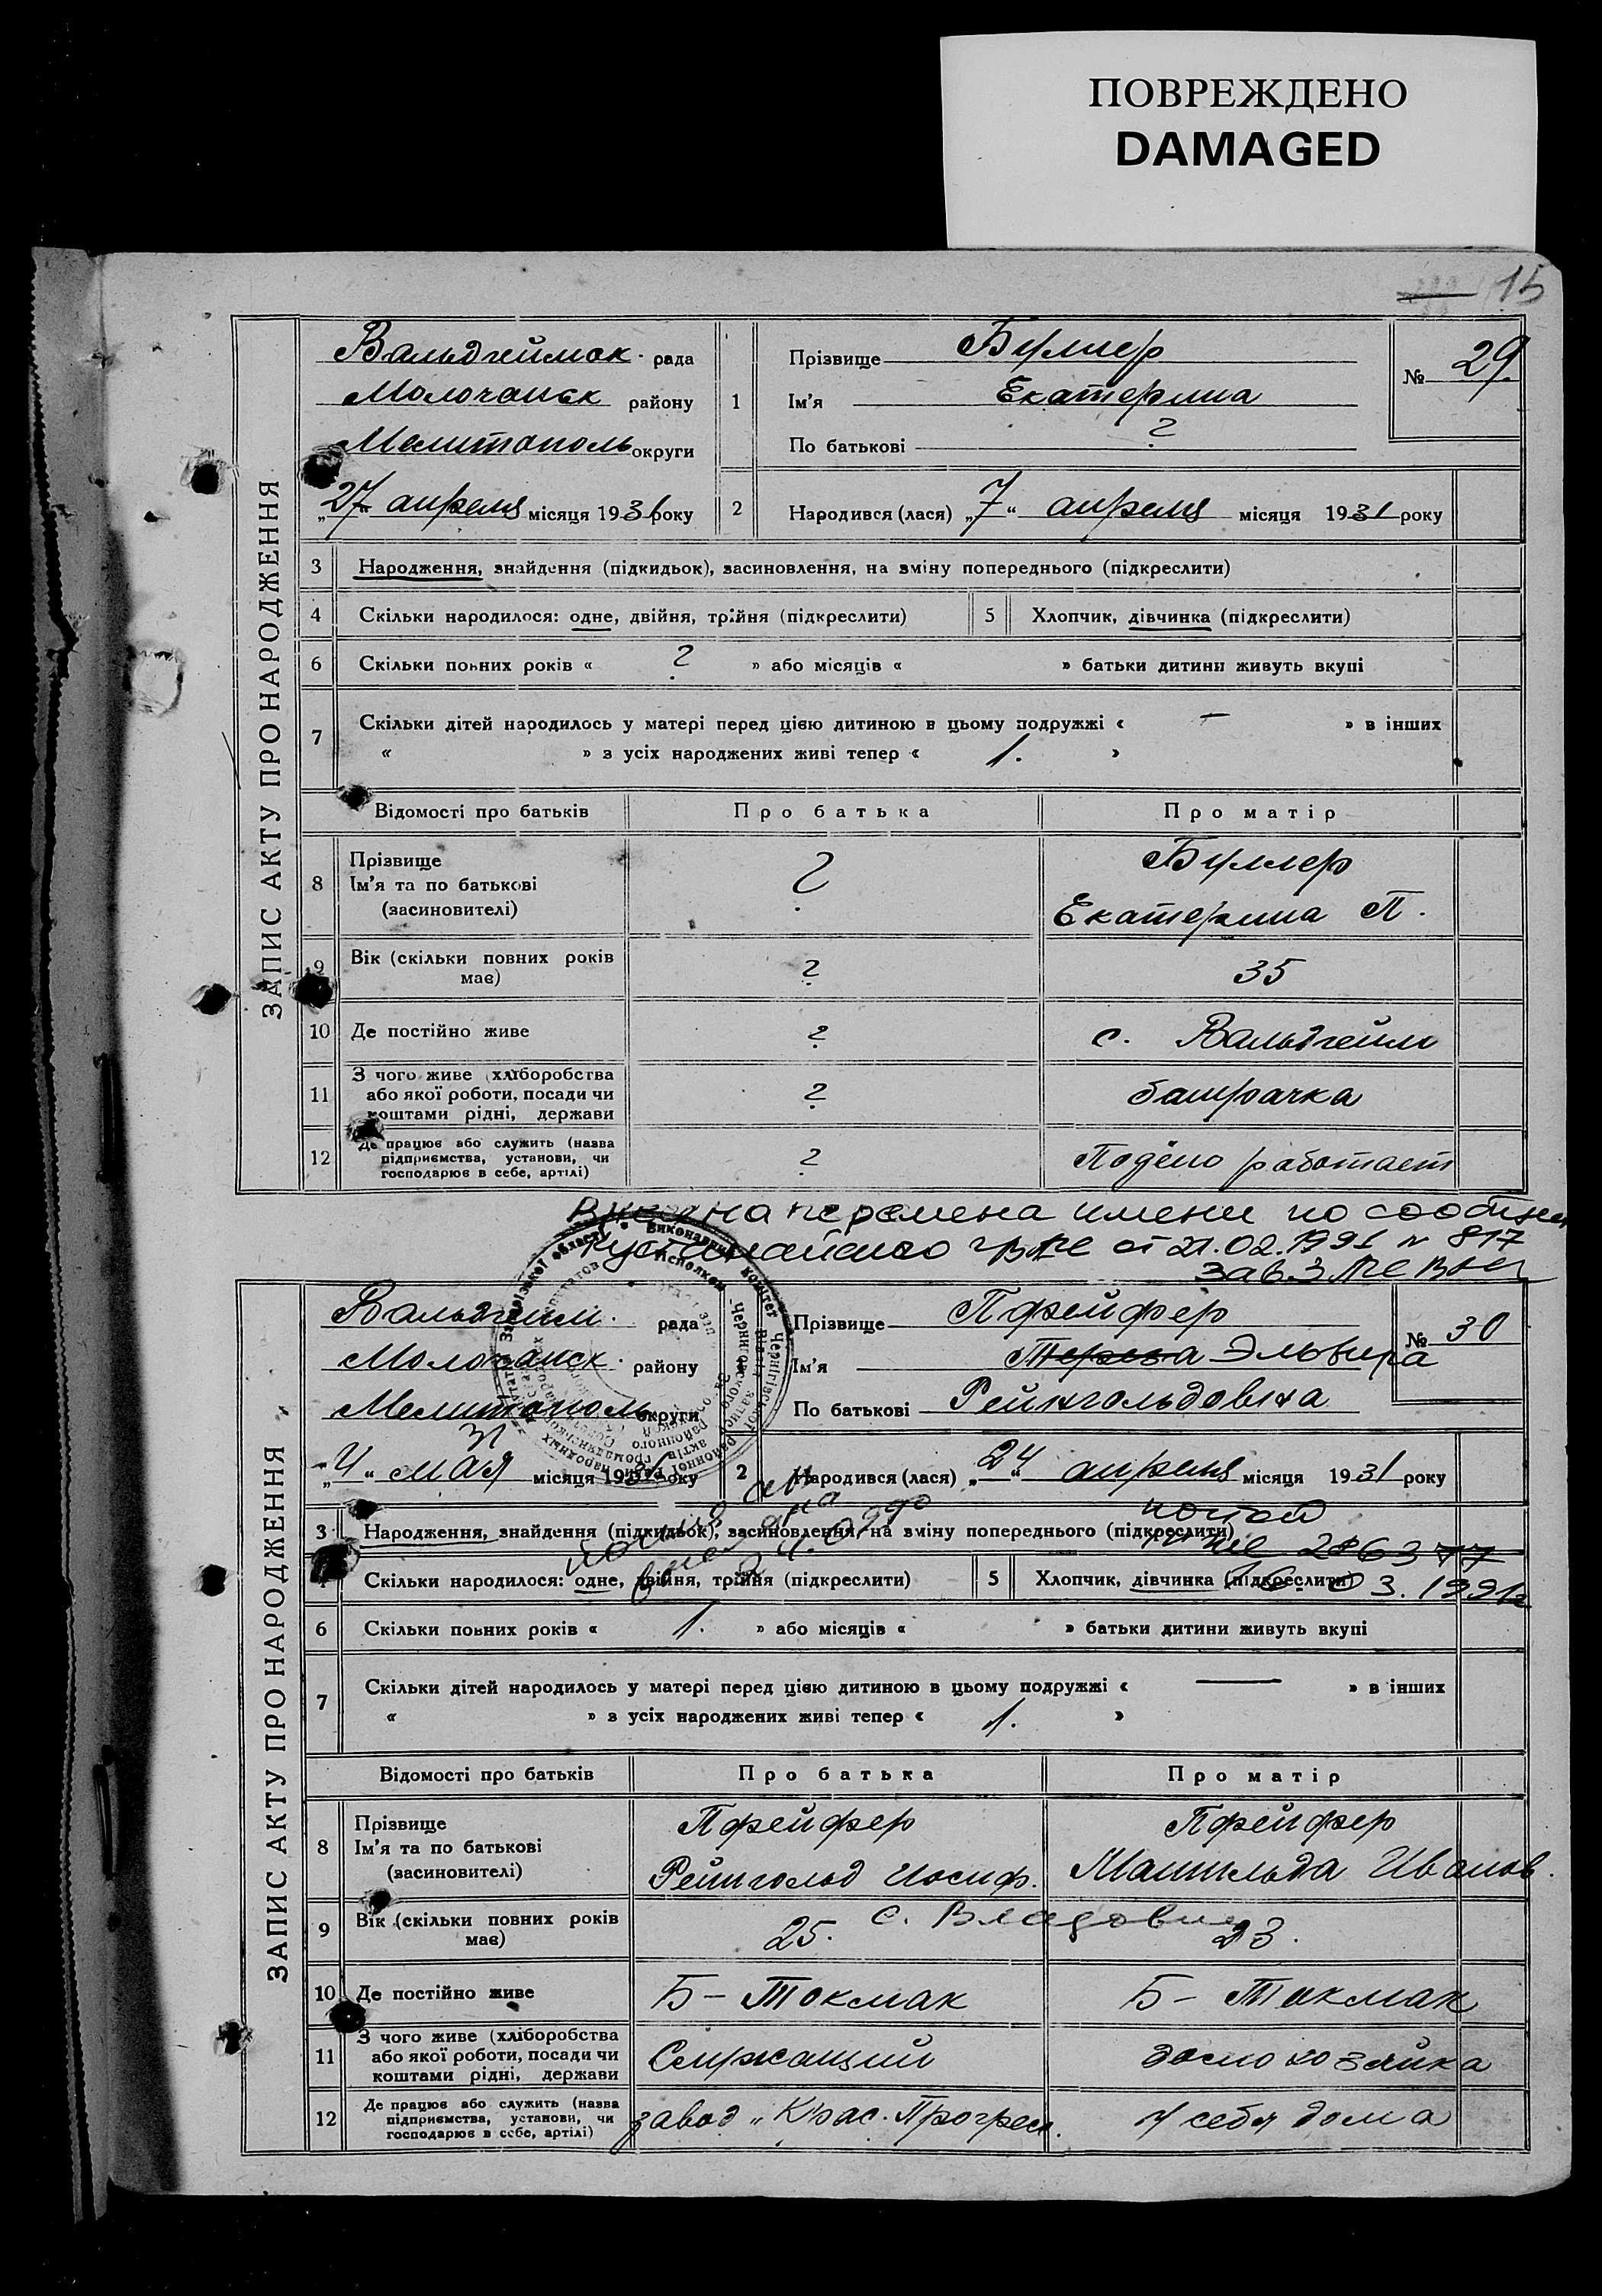 ПОВРЕЖДЕНО
DAMAGED
15
ЗАПИС АКТУ ПРО НАРОДЖЕННЯ
Вальдгеймск. рада
Молочанск району
Мелитополь округи
„27“ апреля місяця 1931 року
1
Прізвище Буллер
Ім'я Екатерина
По батькові ?
№ 29.
2 Народився (лася) „7“ апреля місяця 1931 року
3 Народження, знайдення (підкидьок), засиновлення, на зміну попереднього (підкреслити)
4 Скільки народилося: одне, двійня, трійня (підкреслити) 5 Хлопчик, дівчинка (підкреслити)
6 Скільки повних років « ? » або місяців « » батьки дитини живуть вкупі
7 Скільки дітей народилось у матері перед цією дитиною в цьому подружжі « — » в інших
« » з усіх народжених живі тепер « 1. »
Відомості про батьків Про батька Про матір
8 Прізвище Ім'я та по батькові (засиновителі) ? Буллер Екатерина П.
9 Вік (скільки повних років має) ? 35
10 Де постійно живе ? с. Вальдгейм
11 З чого живе (хліборобства або якої роботи, посади чи коштами рідні, держави ? батрачка
12 Де працює або служить (назва підприємства, установи, чи господарює в себе, артілі) ? Подёно работает
перемена имени по
от 21.02.1991 № 817
ЗАПИС АКТУ ПРО НАРОДЖЕННЯ
Вальдгейм. рада
Молочанск. району
Мелитополь округи
„4“ мая місяця 1931 року
1
Прізвище Пфейфер
Ім'я Эльвира
По батькові Рейнгольдовна
№ 30
2 Народився (лася) „24“ апреля місяця 1931 року
3 Народження, знайдення (підкидьок), засиновлення, на зміну попереднього (підкреслити)
Скільки народилося: одне, двійня, трійня (підкреслити) 5 Хлопчик, дівчинка (підкреслити)
3. 1991
6 Скільки повних років « 1. » або місяців « » батьки дитини живуть вкупі
7 Скільки дітей народилось у матері перед цією дитиною в цьому подружжі « — » в інших
« » з усіх народжених живі тепер « 1. »
Відомості про батьків Про батька Про матір
8 Прізвище Ім'я та по батькові (засиновителі) Пфейфер Рейнгольд Иосиф. Пфейфер Матильда Иванов.
9 Вік (скільки повних років має) 25. с. 23.
10 Де постійно живе Б-Токмак Б-Токмак
11 З чого живе (хліборобства або якої роботи, посади чи коштами рідні, держави Служащий домохозяйка
12 Де працює або служить (назва підприємства, установи, чи господарює в себе, артілі) завод „Крас. Прогресс. у себя дома